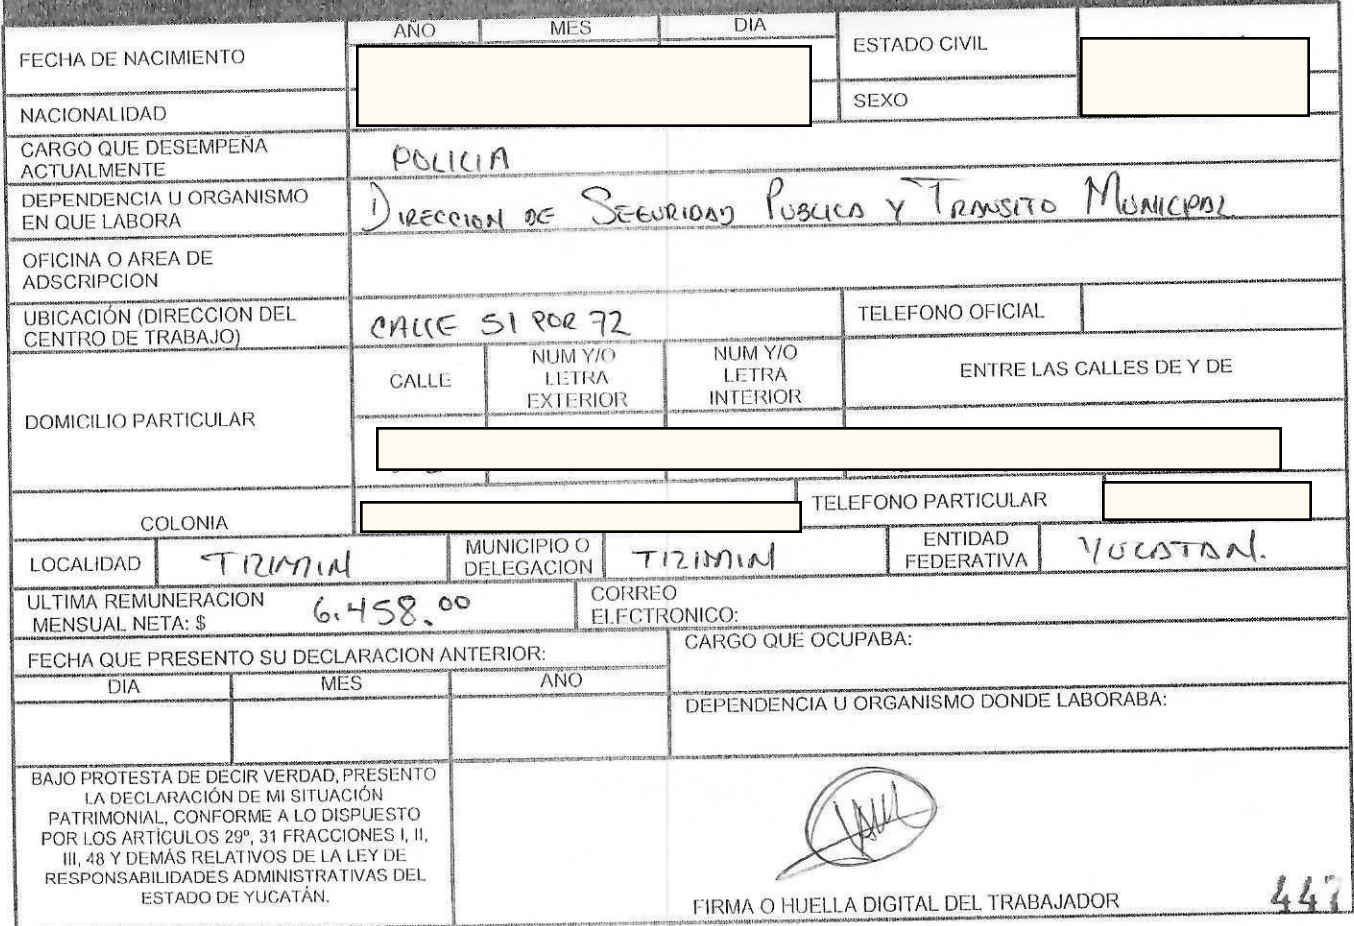 AÑO MES DIA
FECHA DE NACIMIENTO
ESTADO CIVIL
NACIONALIDAD
SEXO
CARGO QUE DESEMPEÑA
ACTUALMENTE
POLICIA
DEPENDENCIA U ORGANISMO
EN QUE LABORA
DIRECCION DE SEGURIDAD PUBLICA Y TRANSITO MUNICIPAL
OFICINA O AREA DE
ADSCRIPCION
UBICACIÓN (DIRECCION DEL
CENTRO DE TRABAJO)
CALLE 51 POR 72
TELEFONO OFICIAL
DOMICILIO PARTICULAR
CALLE
NUM Y/O
LETRA
EXTERIOR
NUM Y/O
LETRA
INTERIOR
ENTRE LAS CALLES DE Y DE
COLONIA
TELEFONO PARTICULAR
LOCALIDAD
TIZIMIN
MUNICIPIO O
DELEGACION
TIZIMIN
ENTIDAD
FEDERATIVA
YUCATAN.
ULTIMA REMUNERACION
MENSUAL NETA: $
6.458.00
CORREO
ELECTRONICO:
FECHA QUE PRESENTO SU DECLARACION ANTERIOR:
DIA MES AÑO
CARGO QUE OCUPABA:
DEPENDENCIA U ORGANISMO DONDE LABORABA:
BAJO PROTESTA DE DECIR VERDAD, PRESENTO
LA DECLARACIÓN DE MI SITUACIÓN
PATRIMONIAL, CONFORME A LO DISPUESTO
POR LOS ARTÍCULOS 29º, 31 FRACCIONES I, II,
III, 48 Y DEMÁS RELATIVOS DE LA LEY DE
RESPONSABILIDADES ADMINISTRATIVAS DEL
ESTADO DE YUCATÁN.
FIRMA O HUELLA DIGITAL DEL TRABAJADOR
447